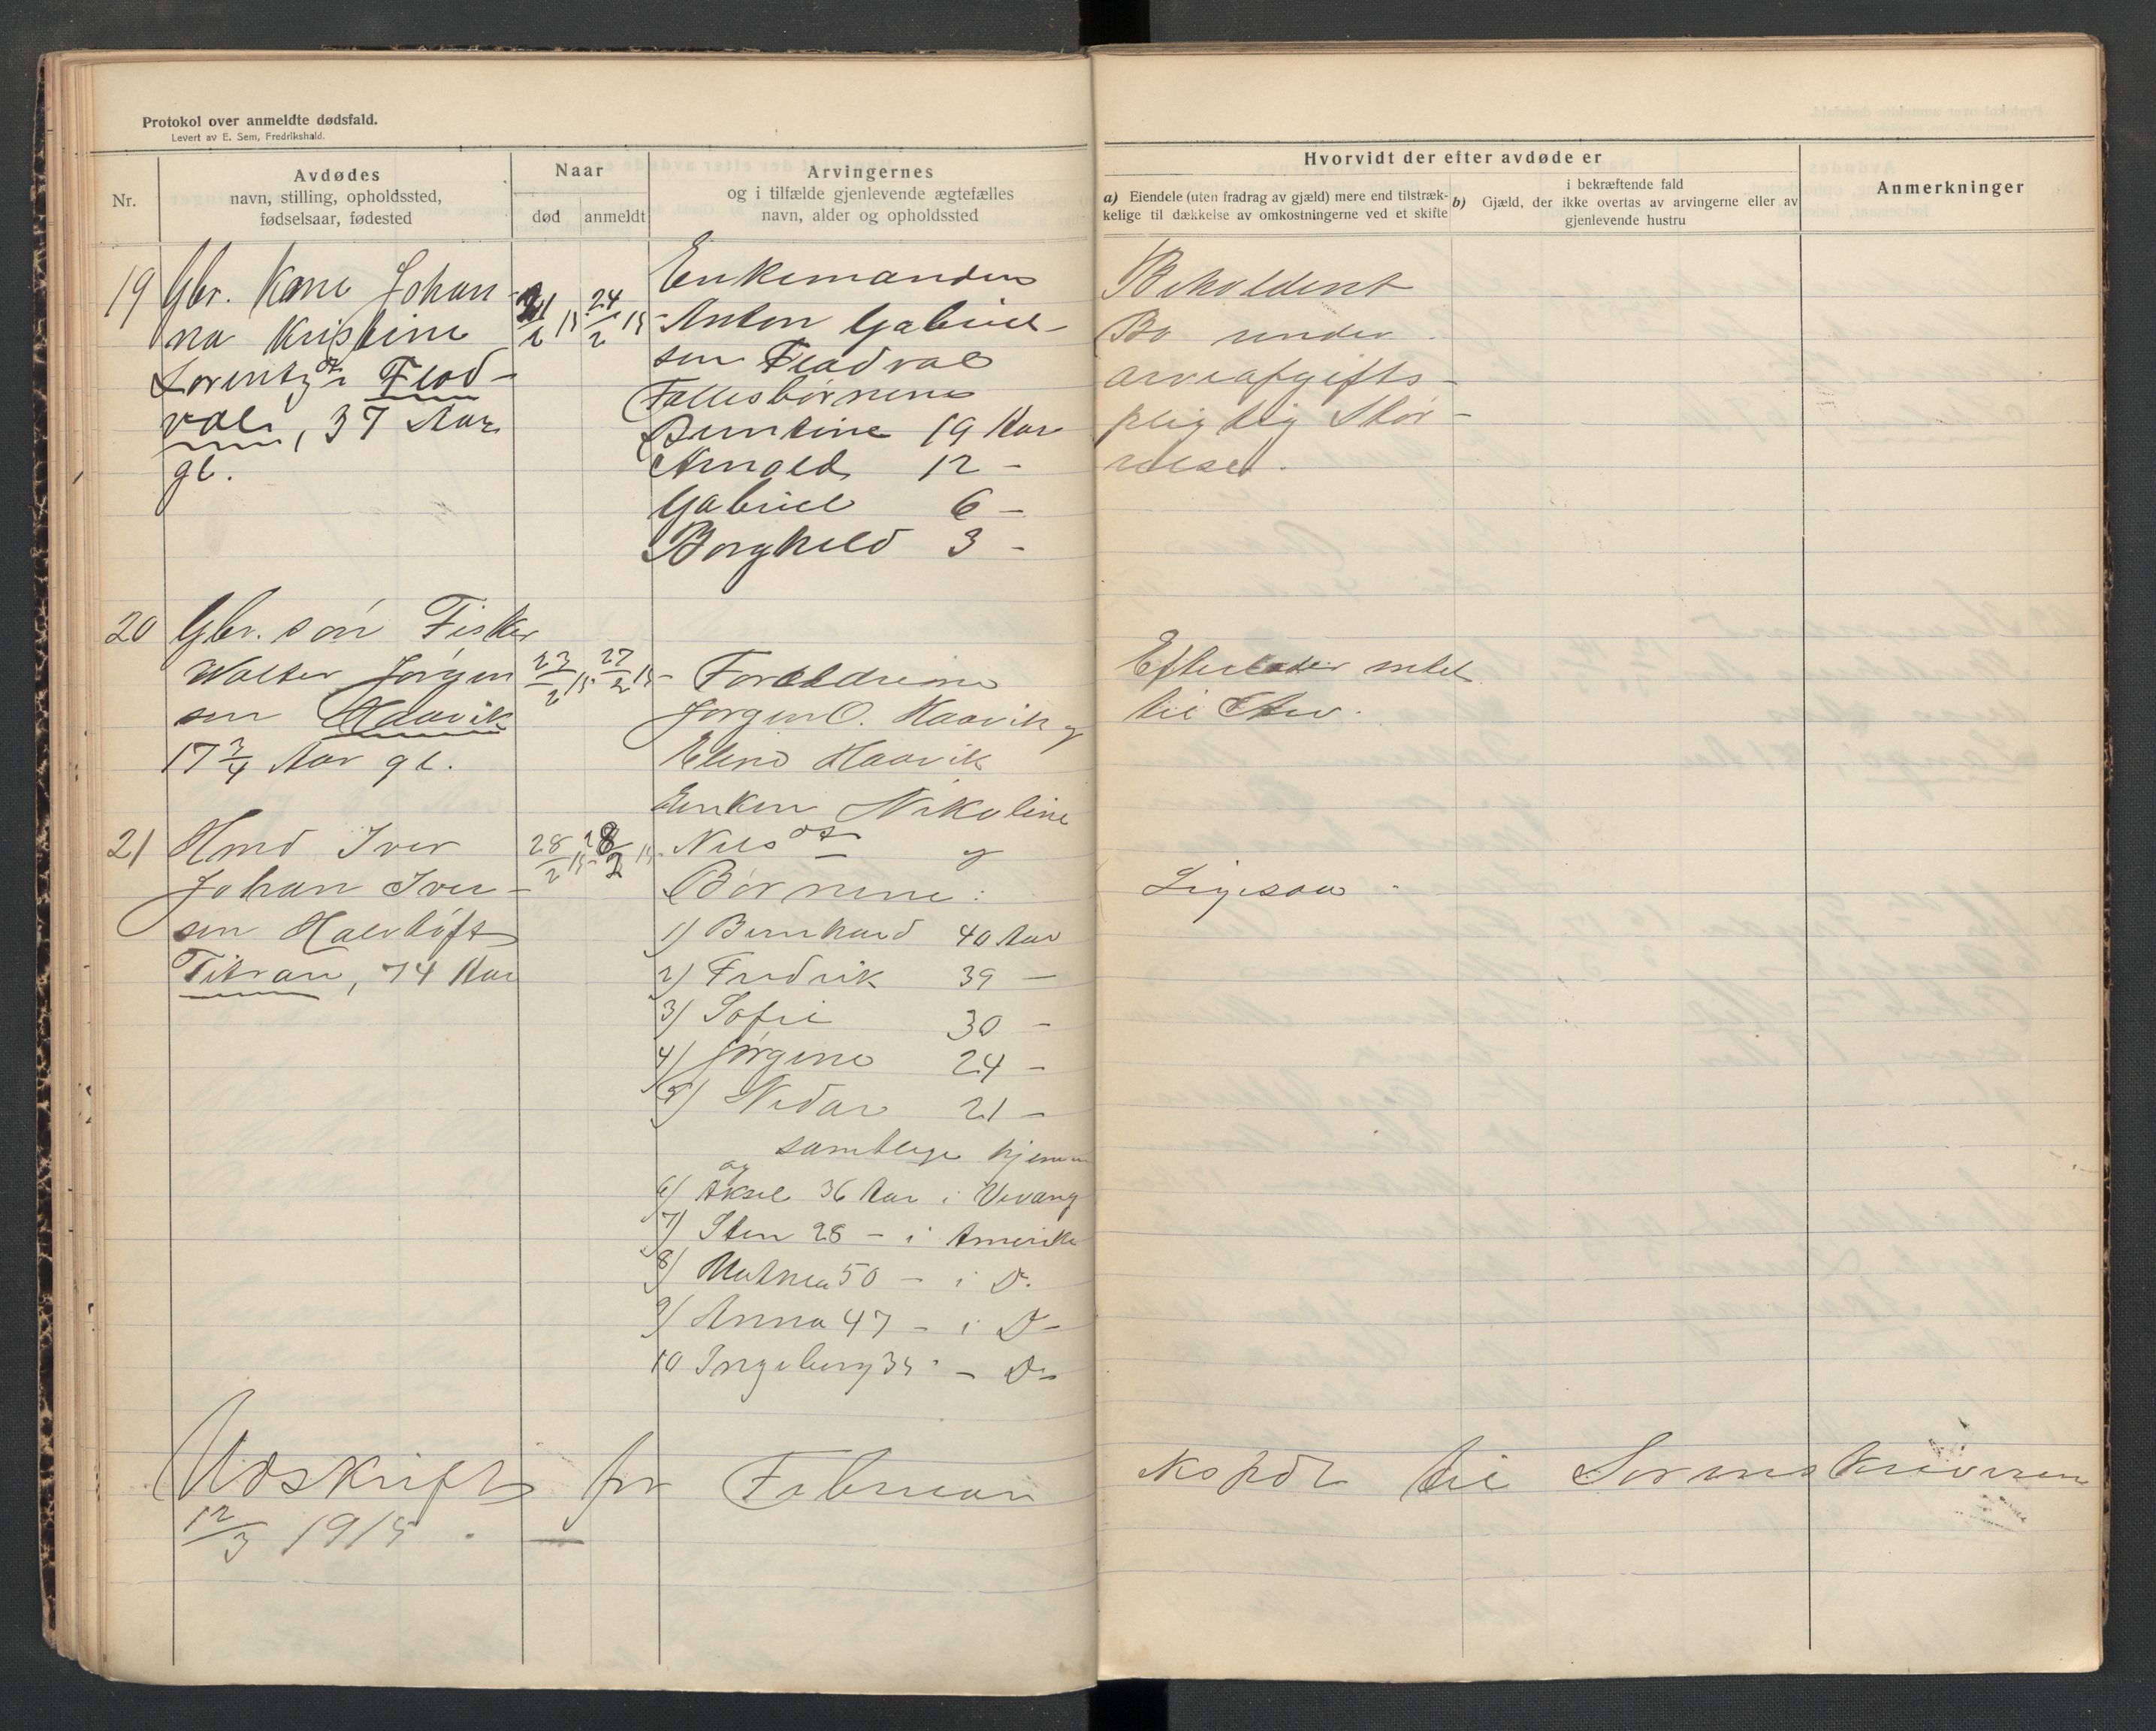 Protokol over anmeldte dødsfald.
Levert av E. Sem, Fredrikshald.
Nr.
Avdødes
navn, stilling, opholdssted,
fødselsaar, fødested
Naar
død
anmeldt
Arvingernes
og i tilfælde gjenlevende ægtefælles
navn, alder og opholdssted
Hvorvidt der efter avdøde er
a) Eiendele (uten fradrag av gjæld) mere end tilstræk-
kelige til dækkelse av omkostningerne ved et skifte
i bekræftende fald
b) Gjæld, der ikke overtas av arvingerne eller av
gjenlevende hustru
Anmerkninger
19 Gbr. Kone Johan-
na Kristine
Lorentz dtr Flad-
val, 37 Aar
gl.
21/2 15 24/2 15
Enkemanden
Anton Gabriel-
sen Fladval
Fællesbørnene
Berntine 19 Aar
Arnold 12 -
Gabriel 6 -
Borghild 3 -
Beholdent
Bo under
arveafgifts-
pligtig Stør-
relse.
20 Gbr. søn Fisker
Walter Jørgen
sen Haavik
17 3/4 Aar gl.
23/2 15 27/2 15
Forældrene
Jørgen O. Haavik og
Elene Haavik
Efterlader intet
til Arv.
21 Kmd Iver
Johan Iver-
sen Halvtøft
Titran, 74 Aar
28/2 15 28/2 15
Enken Nikoline
Nils dtr og
Børnene:
1) Bernhard 40 Aar
2) Fredrik 39 -
3) Sofie 30 -
4) Jørgine 24 -
5) Vidar 21 -
samtlige hjemme
og
6) Aksel 36 Aar i Vevang
7) Sten 28 - i Amerika
8) 50 - i Do.
9) Anna 47 - i Do
10 Ingeborg 35 - Do
Ligesaa.
Udskrift for Februar exped. til Sorenskriveren
12/3 1915.